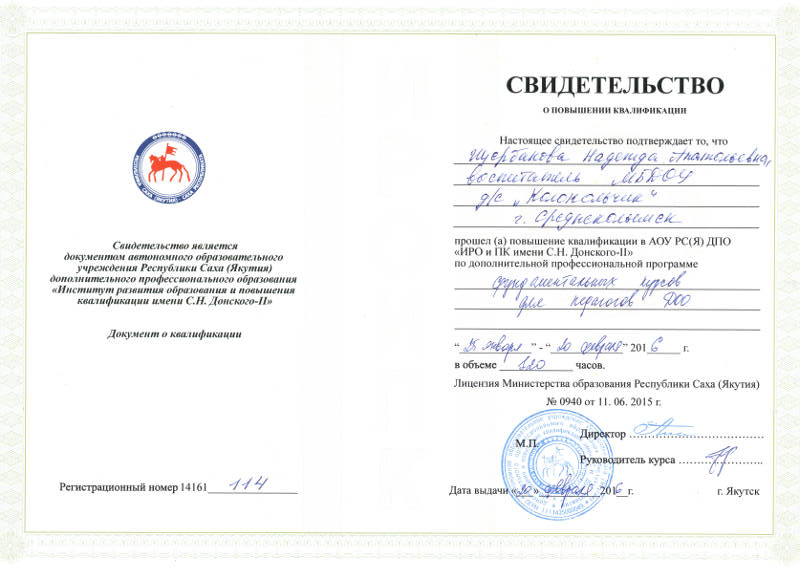 Свидетельство является
документом автономного образовательного
учреждения Республики Саха (Якутия)
дополнительного профессионального образования
«Институт развития образования и повышения
квалификации имени С.Н. Донского-II»
Документ о квалификации
Регистрационный номер 14161 114
СВИДЕТЕЛЬСТВО
О ПОВЫШЕНИИ КВАЛИФИКАЦИИ
Настоящее свидетельство подтверждает то, что
Щербакова Надежда Анатольевна,
воспитатель МБДОУ
д/с „Колокольчик"
г. Среднеколымск
прошел (а) повышение квалификации в АОУ РС(Я) ДПО
«ИРО и ПК имени С.Н. Донского-II»
по дополнительной профессиональной программе
фундаментальных курсов
для педагогов ДОО
“ 25 января ” - “ 20 февраля ” 2016 г.
в объеме 120 часов.
Лицензия Министерства образования Республики Саха (Якутия)
№ 0940 от 11. 06. 2015 г.
М.П.
Директор
Руководитель курса
Дата выдачи «20» февраля 2016 г.
г. Якутск